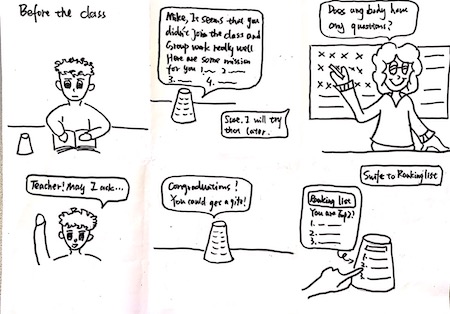 Before the class
Mike, It seems that you
didn't join the class and
Group work really well
Here are some mission
for you 1. 2
3. 4.
Sure. I will try
that later.
Does any body have
any questions?
Teacher! May I ask...
Congraduations!
You could get a gift!
Swife to Ranking list
Ranking list
You are Top2!
1.
2.
3.
1.
2.
3.